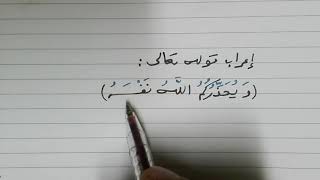 إعراب قوله تعالى :
(وَيُحَذِّرُكُمُ اللَّهُ نَفْسَهُ)